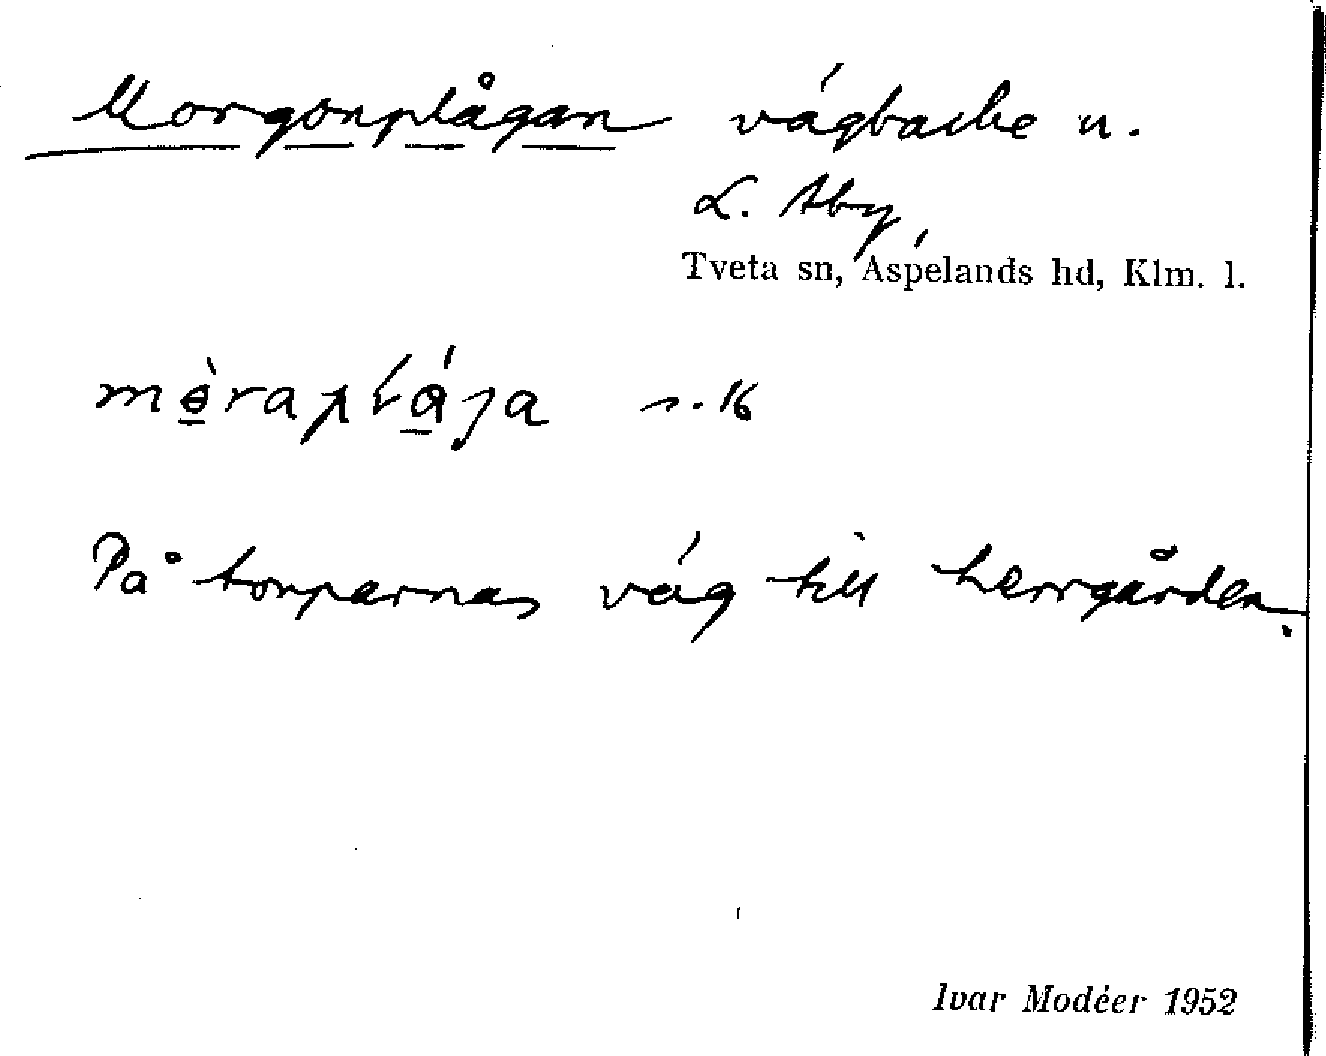 Morgonplågan vägbacke n.
L. Aby,
Tveta sn, Aspelands hd, Klm. l.
s. 16
På torparnas väg till herrgården.
Ivar Modéer 1952